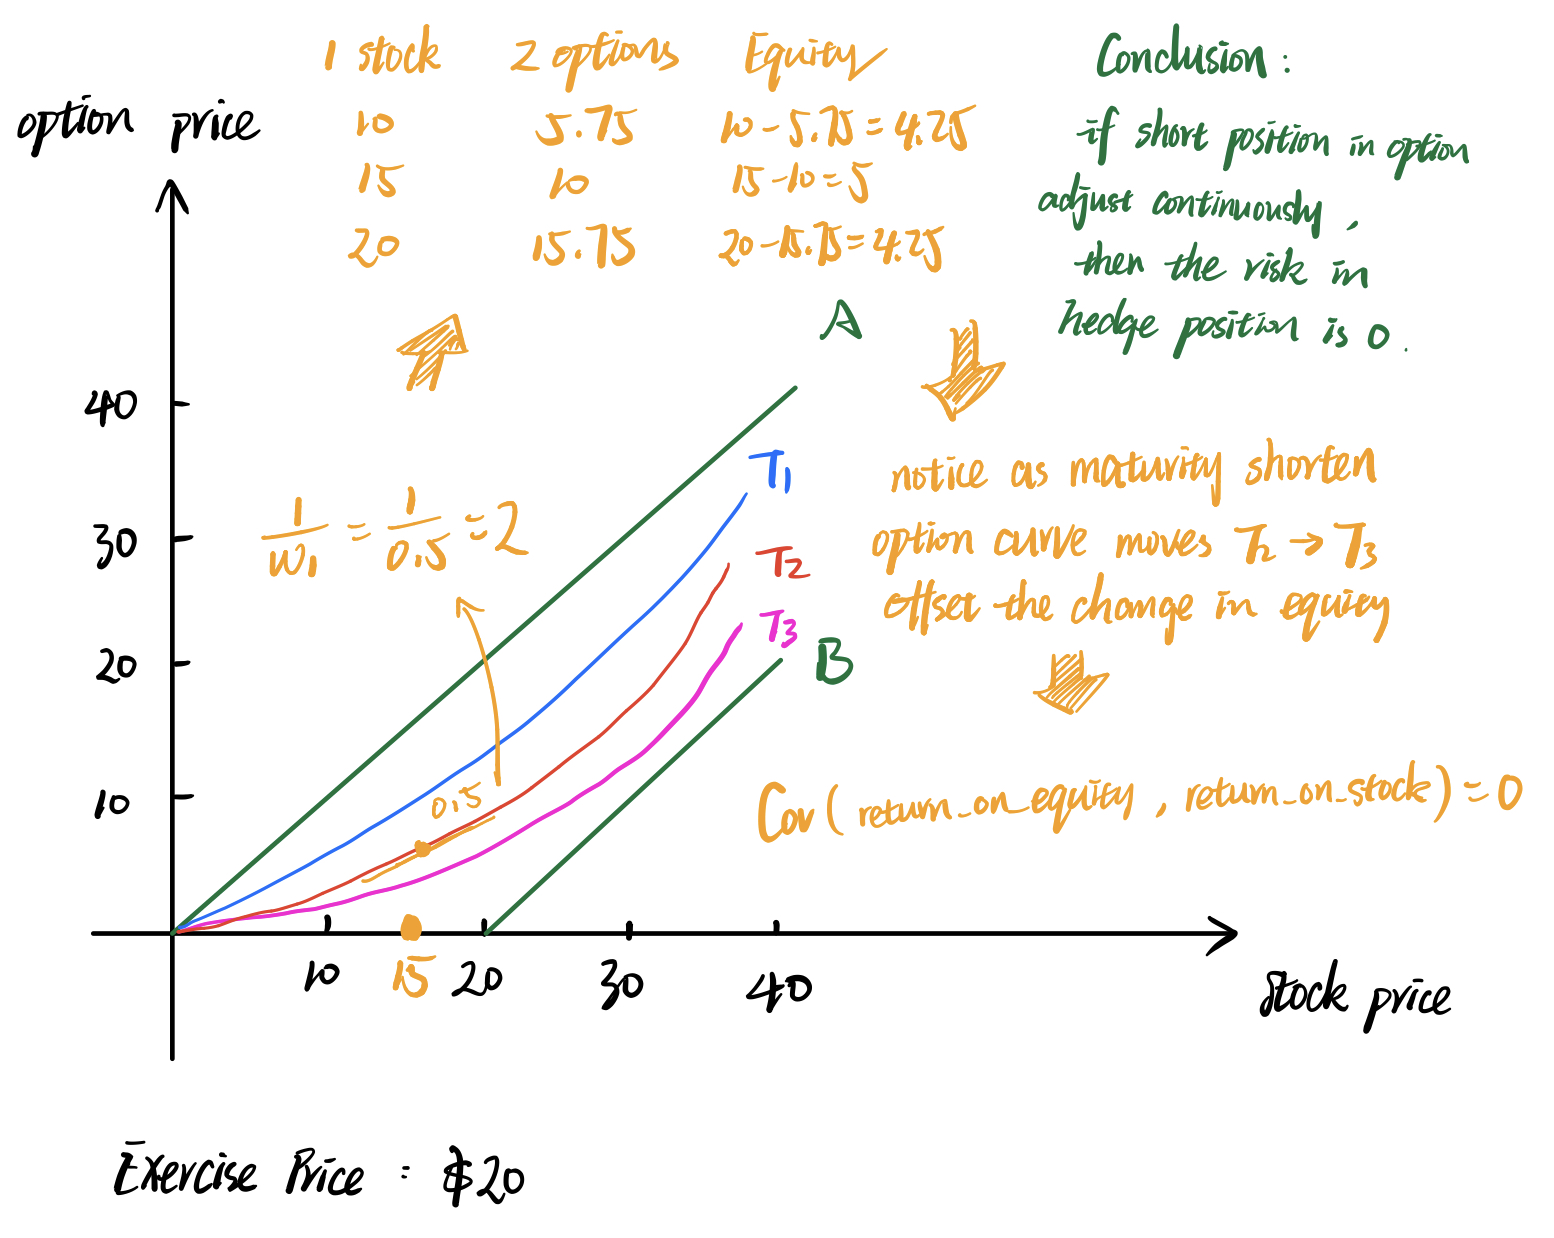 1 stock 2 options Equity
10 5.75 10 - 5.75 = 4.25
15 10 15 - 10 = 5
20 15.75 20 - 15.75 = 4.25
Conclusion :
if short position in option
adjust continuously ,
then the risk in
hedge position is 0 .
option price
40
30
20
10
1/w1 = 1/0.5 = 2
A
T1
T2
T3
B
notice as maturity shorten
option curve moves T2 → T3
offset the change in equity
Cov ( return_on_equity , return_on_stock ) = 0
0.5
10 15 20 30 40
stock price
Exercise Price : $20